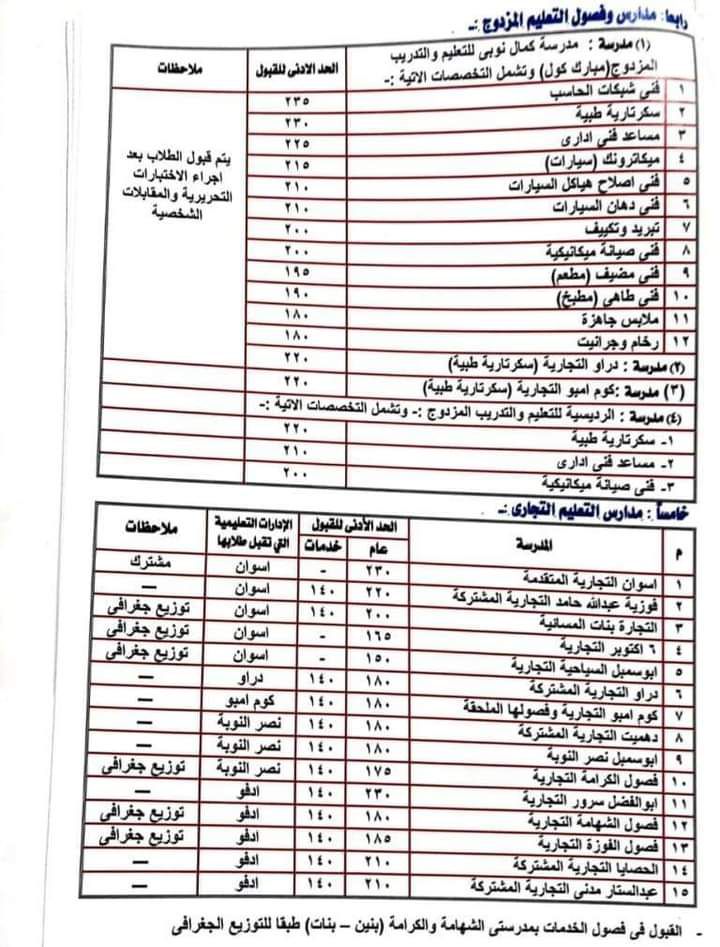 رابعا: مدارس وفصول التعليم المزدوج :-
(١) مدرسة : مدرسة كمال نوبى للتعليم والتدريب المزدوج(مبارك كول) وتشمل التخصصات الاتية :- الحد الادنى للقبول ملاحظات
١ فنى شبكات الحاسب ٢٣٥
٢ سكرتارية طبية ٢٣٠
٣ مساعد فنى ادارى ٢٢٥
٤ ميكاترونك (سيارات) ٢١٥
٥ فنى اصلاح هياكل السيارات ٢١٠
٦ فنى دهان السيارات ٢١٠
٧ تبريد وتكييف ٢٠٠
٨ فنى صيانة ميكانيكية ٢٠٠
٩ فنى مضيف (مطعم) ١٩٥
١٠ فنى طاهى (مطبخ) ١٩٠
١١ ملابس جاهزة ١٨٠
١٢ رخام وجرانيت ١٨٠
يتم قبول الطلاب بعد
اجراء الاختبارات
التحريرية والمقابلات
الشخصية
(٢) مدرسة : دراو التجارية (سكرتارية طبية) ٢٢٠
(٣) مدرسة :كوم امبو التجارية (سكرتارية طبية) ٢٢٠
(٤) مدرسة : الرديسية للتعليم والتدريب المزدوج :- وتشمل التخصصات الاتية :-
١- سكرتارية طبية ٢٢٠
٢- مساعد فنى ادارى ٢١٠
٣- فنى صيانة ميكانيكية ٢٠٠
خامساً : مدارس التعليم التجارى :-
م المدرسة الحد الأدنى للقبول الإدارات التعليمية التي تقبل طلابها ملاحظات
عام خدمات
١ اسوان التجارية المتقدمة ٢٣٠ - اسوان مشترك
٢ فوزية عبدالله حامد التجارية المشتركة ٢٢٠ ١٤٠ اسوان —
٣ التجارة بنات المسائية ٢٠٠ ١٤٠ اسوان توزيع جغرافى
٤ ٦ اكتوبر التجارية ١٦٥ - اسوان توزيع جغرافى
٥ ابوسمبل السياحية التجارية ١٥٠ - اسوان توزيع جغرافى
٦ دراو التجارية المشتركة ١٨٠ ١٤٠ دراو —
٧ كوم امبو التجارية وفصولها الملحقة ١٨٠ ١٤٠ كوم امبو —
٨ دهميت التجارية المشتركة ١٨٠ ١٤٠ نصر النوبة —
٩ ابوسمبل نصر النوبة ١٨٠ ١٤٠ نصر النوبة —
١٠ فصول الكرامة التجارية ١٧٥ ١٤٠ نصر النوبة توزيع جغرافى
١١ ابوالفضل سرور التجارية ٢٣٠ ١٤٠ ادفو —
١٢ فصول الشهامة التجارية ١٨٠ ١٤٠ ادفو توزيع جغرافى
١٣ فصول الفوزة التجارية ١٨٥ ١٤٠ ادفو توزيع جغرافى
١٤ الحصايا التجارية المشتركة ٢١٠ ١٤٠ ادفو —
١٥ عبدالستار مدنى التجارية المشتركة ٢١٠ ١٤٠ ادفو —
- القبول فى فصول الخدمات بمدرستى الشهامة والكرامة (بنين - بنات) طبقا للتوزيع الجغرافى